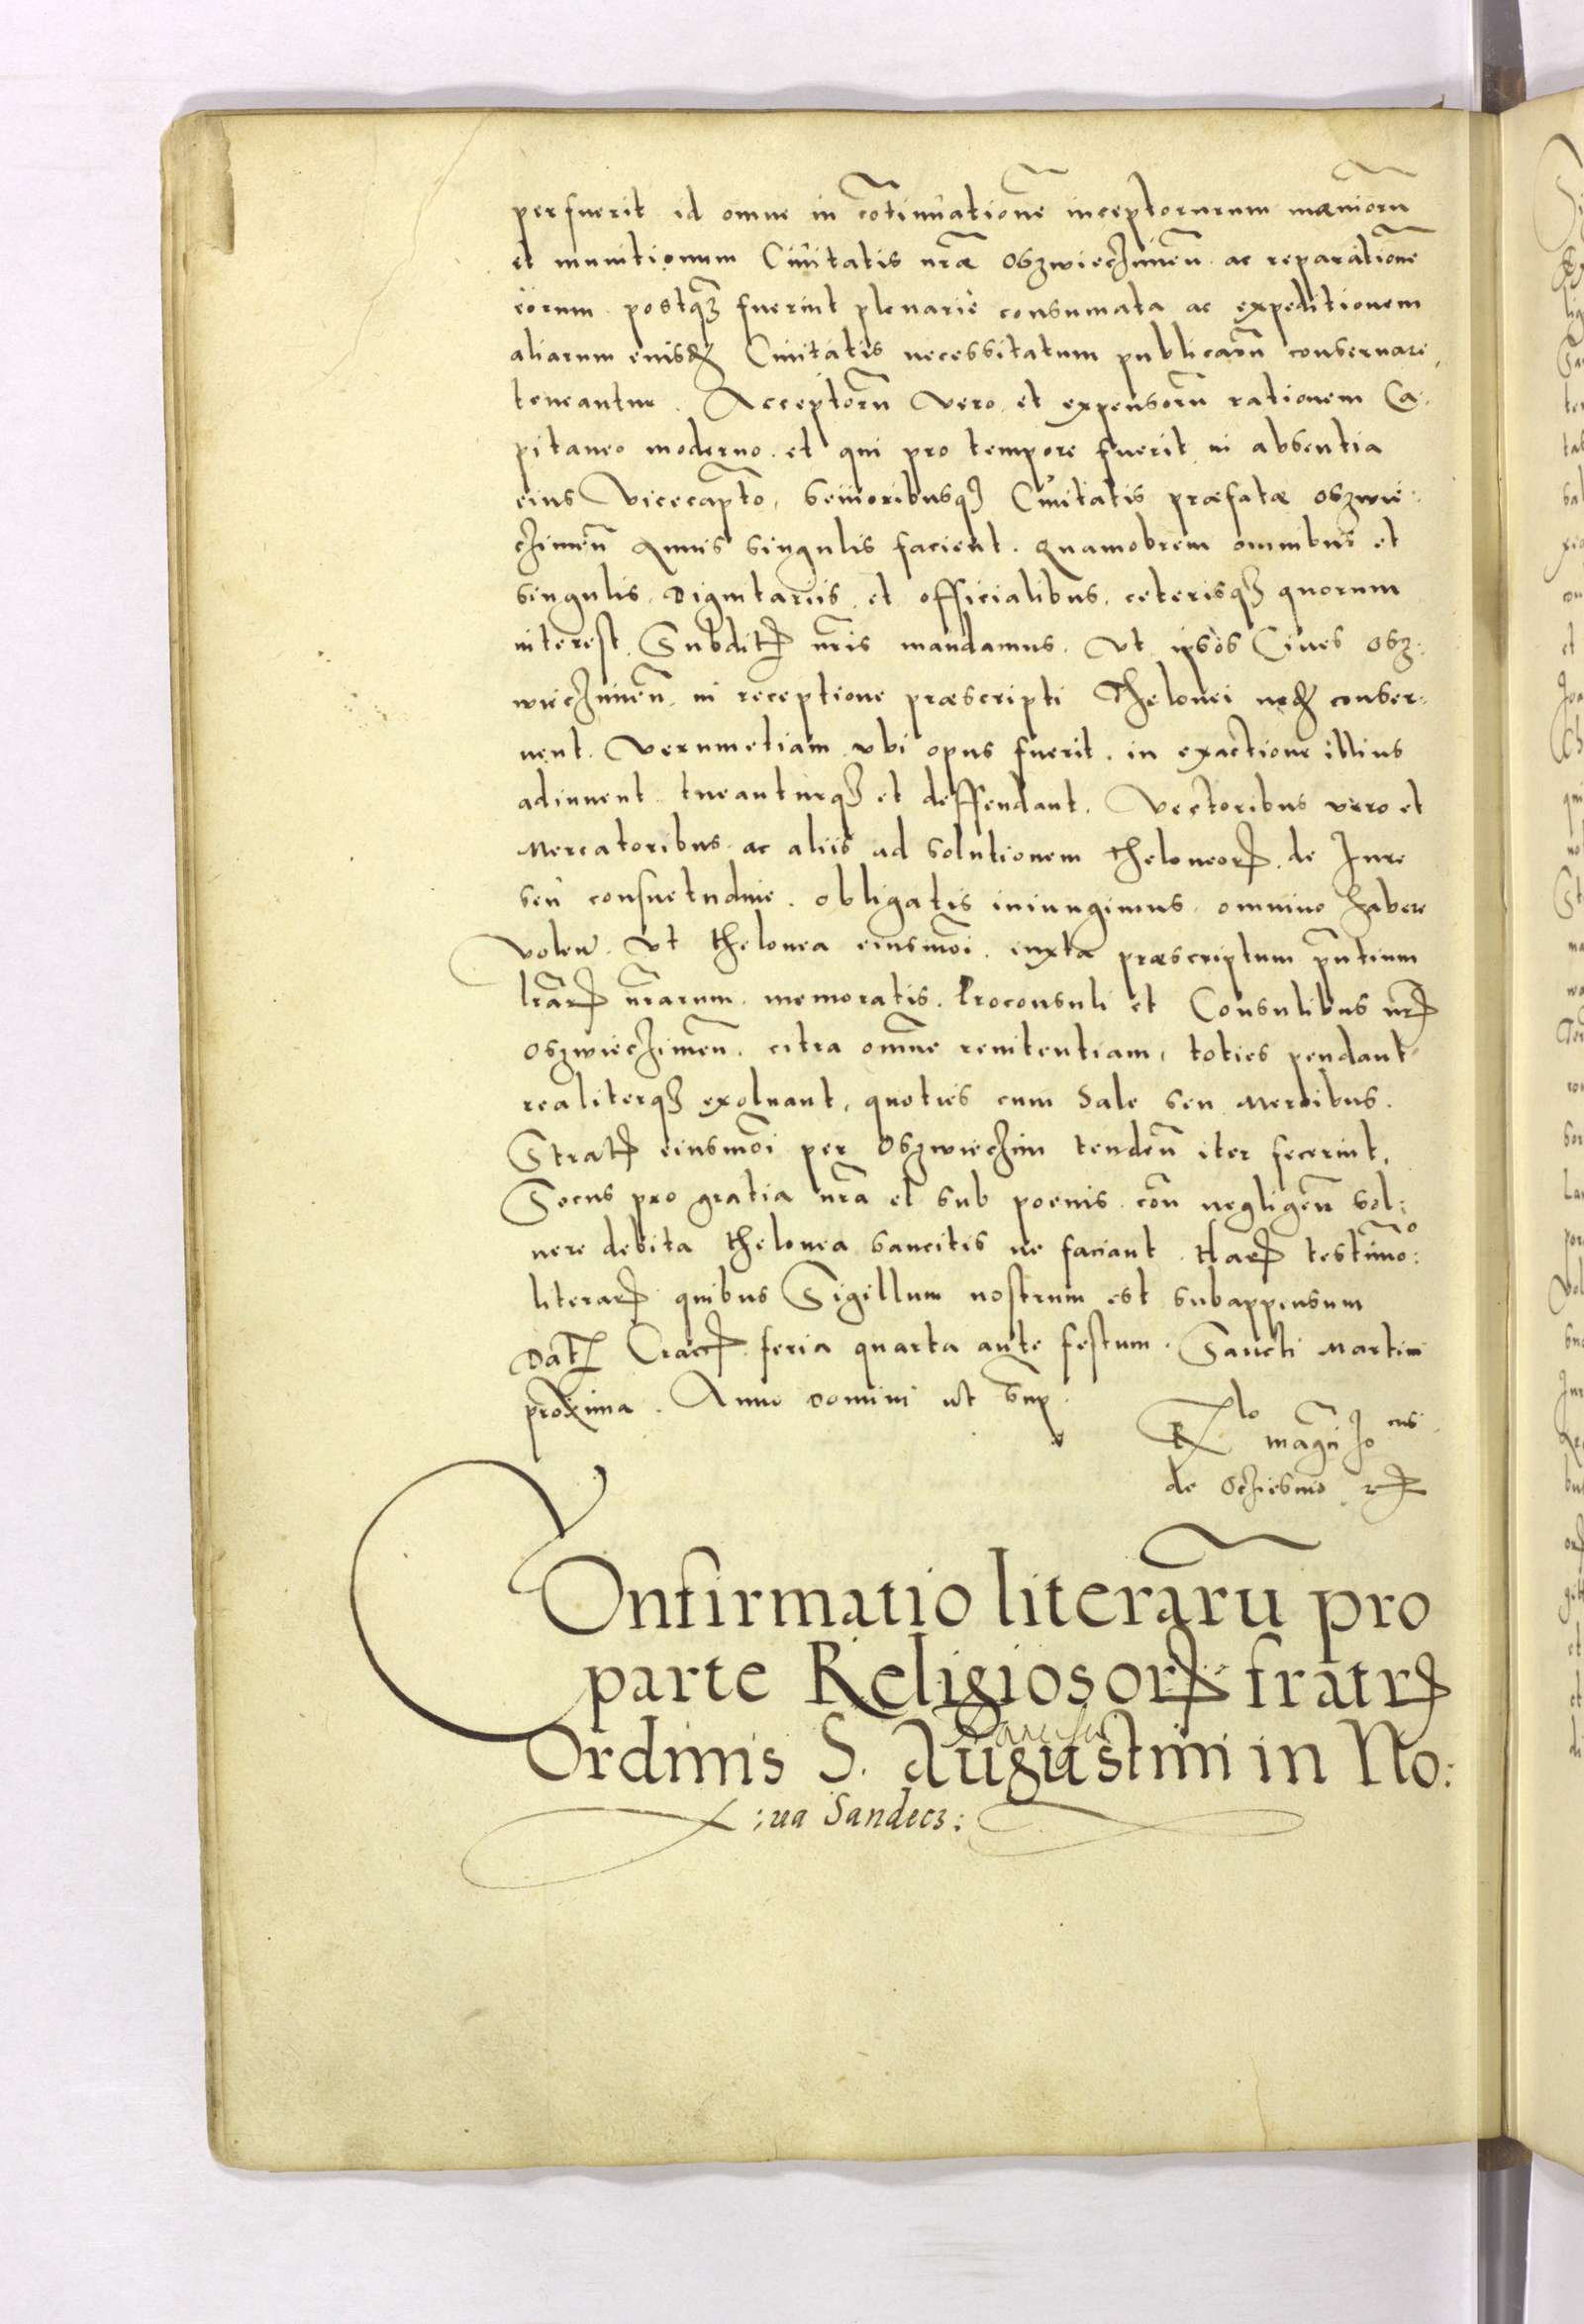 perfuerit id omne in cōtinuationē inceptorurum mæniorū
et munitionum Ciuitatis nræ Oszwieczimeñ ac reparationē
eorum postq̃ȝ fuerint plenarie consumata ac expeditionem
aliarum euisdꝫ Ciuitatis necessitatum publicarū conseruare
teneantur. Acceptorū vero et expensorū rationem Ca:
pitaneo moderno et qui pro tempore fuerit in absentia
eius vicecapto, senioribusqȝ Ciuitatis præfatæ Oszwie:
czimeñ Annis singulis facient. Quamobrem omnibus et
singulis Dignitariis et officialibus, ceterisqȝ quorum
interest Subditꝭ nr̃is mandamus. Vt ipsos Ciues Osz:
wieczimeñ in receptione præscripti Thelonei nedꝫ conser:
uent. Verumetiam vbi opus fuerit in exactione illius
adiuuent tueanturqȝ et deffendant. Vectoribus vero et
Mercatoribus ac aliis ad solutionem theloneorꝭ de Iure
seu consuetudine obligatis iniungimus omnino habere
volen̄. Vt thelonea eiusmōi iuxta præscriptum pn̄tium
lr̃arꝭ nr̃arum memoratis Proconsuli et Consulibus nr̃ꝭ
Oszwieczimeñ citra omne renitentiam, toties pendant
realiterqȝ exoluant, quoties cum Sale seu Mercibus
Stratꝭ eiusmōi per Oszwieczim tendeñ iter fecerint.
Secus pro gratia nr̃a et sub poenis coñ negligeñ sol:
uere debita thelonea sancitis ne faciant. Harꝭ testimo:º
literarꝭ quibus Sigillum nostrum est subappensum
Datꝭ Cracꝭ feria quarta ante festum Sancti Martini
proxima. Anno domini vt sup̄.
Rlo magci Jo ens
de Oczieszino rꝭ
COnfirmatio literarū pro
parte Religiosorꝭ fratrꝭ
Ordinis S. Augustini in No:
:ua Sandecz: